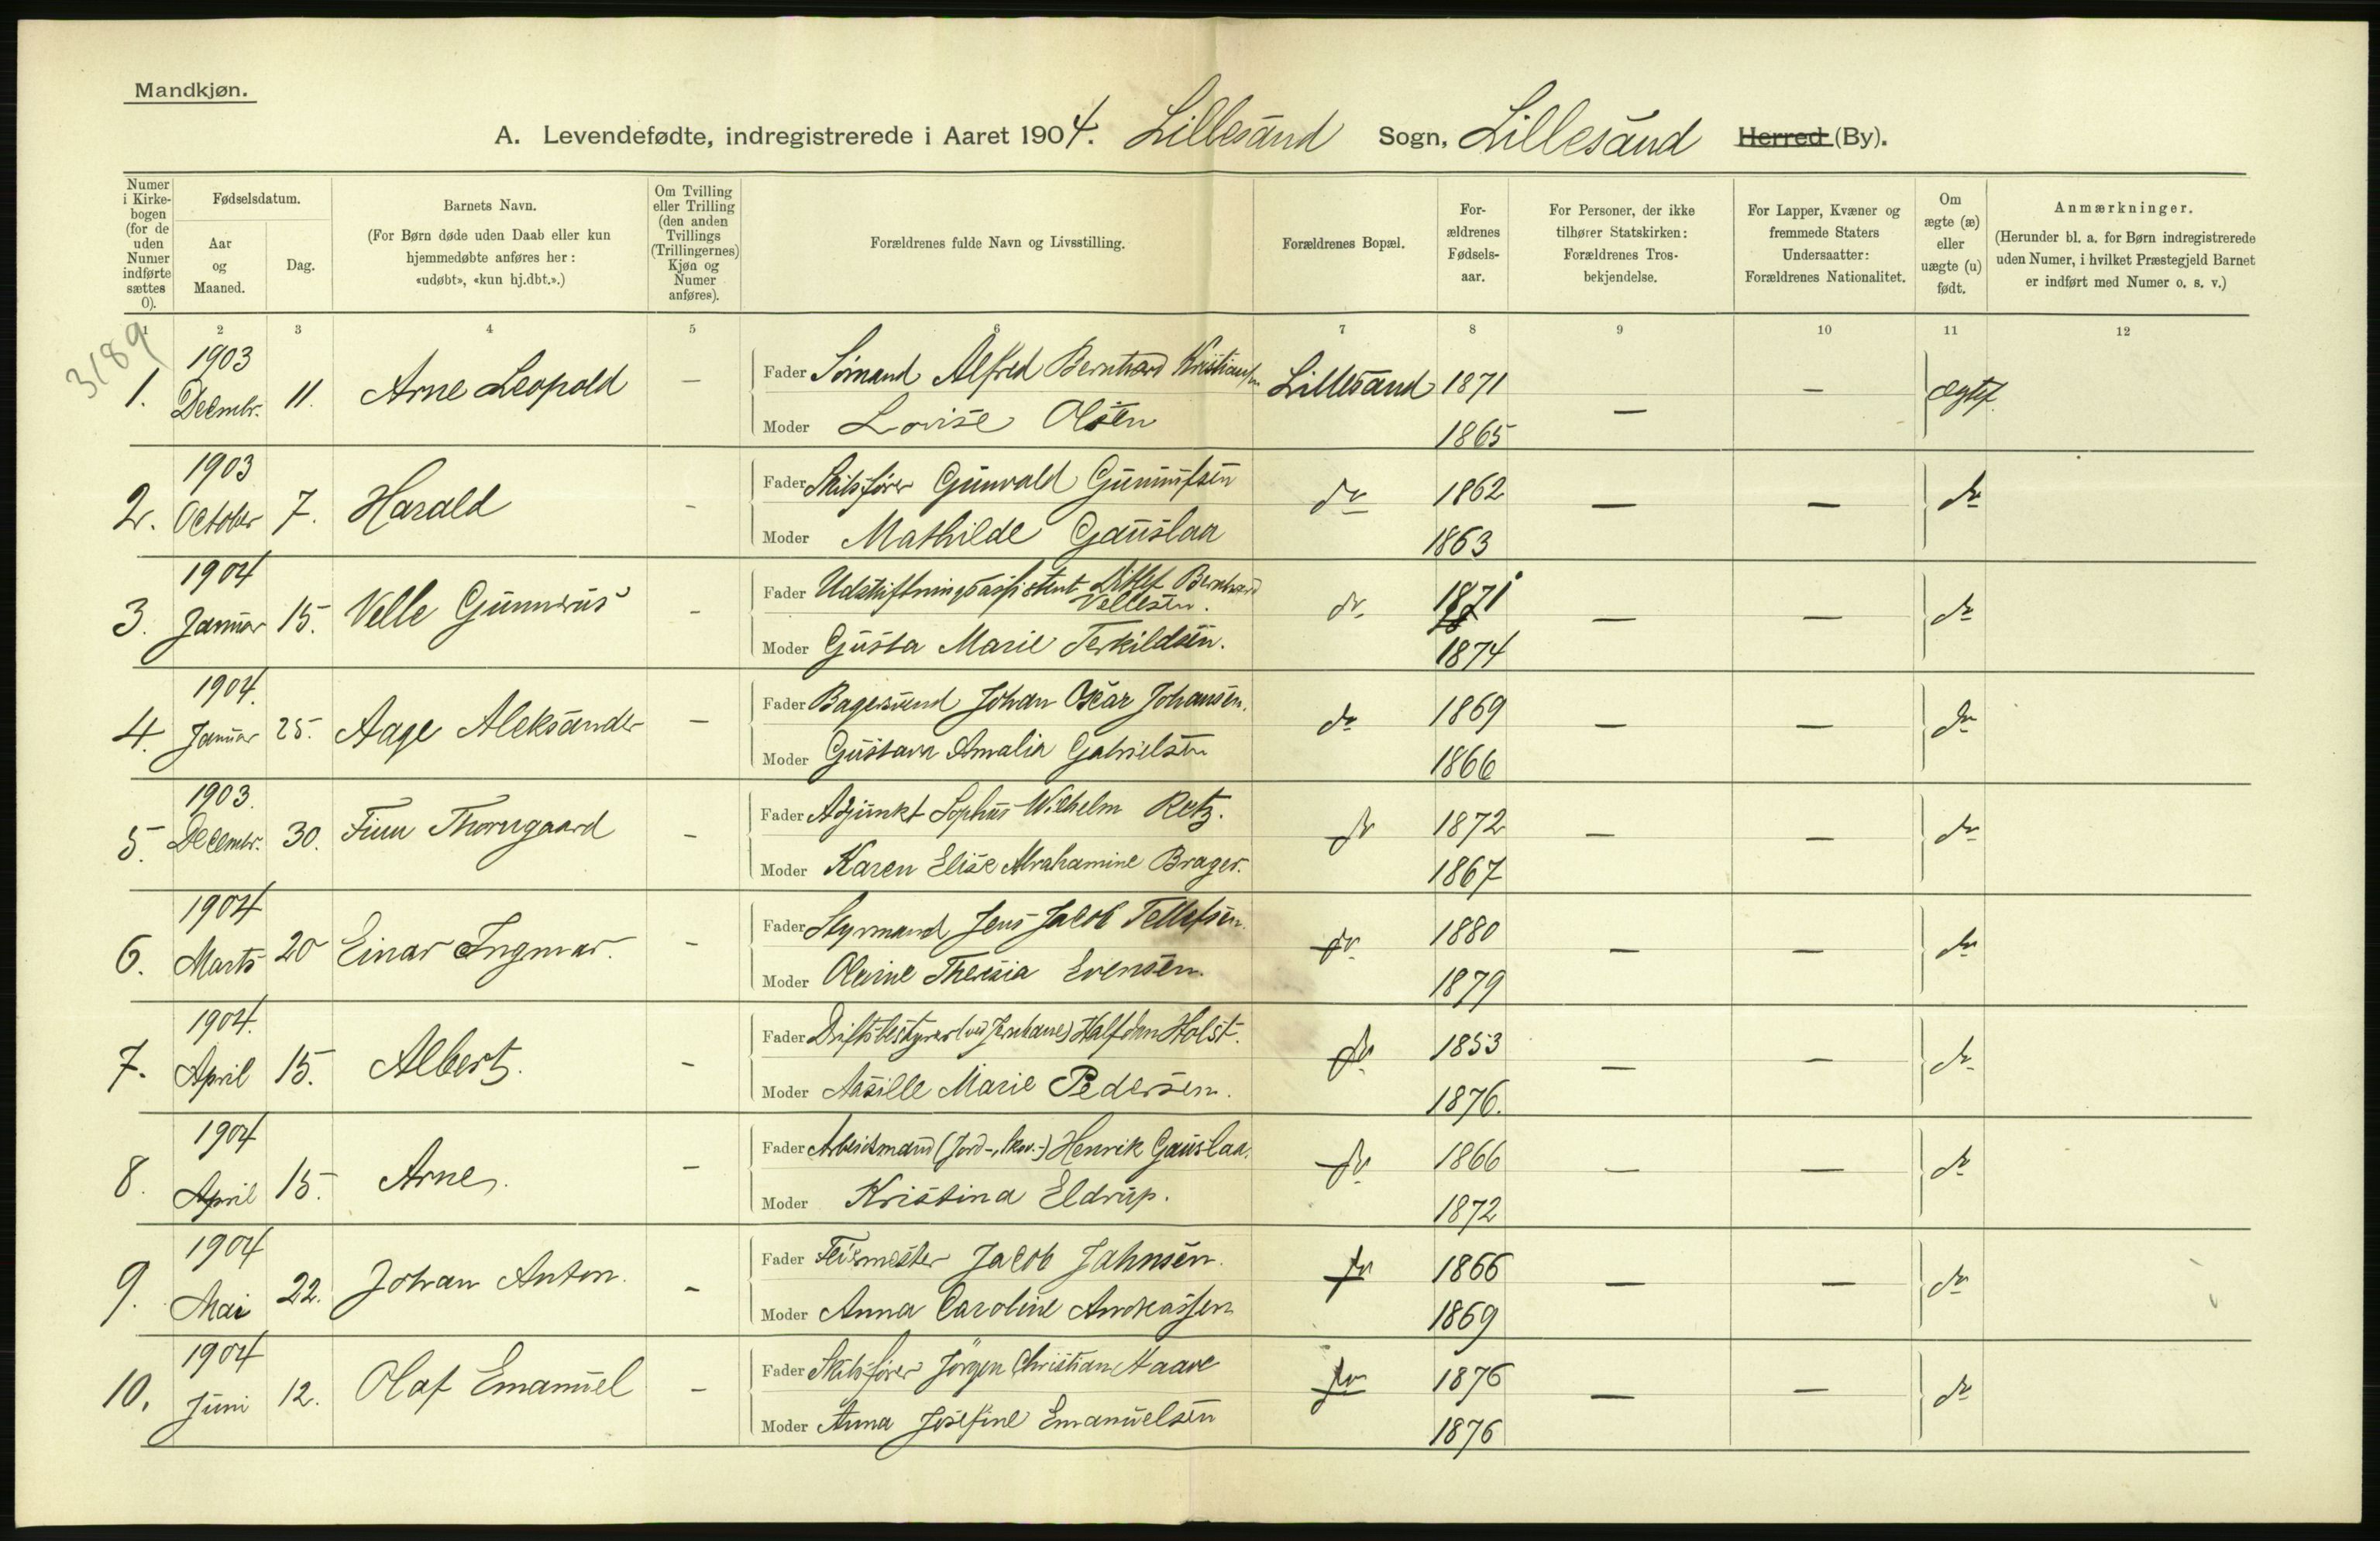 Mandkjøn.
A. Levendefødte, indregistrerede i Aaret 1904. Lillesand Sogn, Lillesand Herred (By).
Numer i Kirkebogen (for de uden Numer indførte sættes 0).
Fødselsdatum.
Aar og Maaned.
Dag.
Barnets Navn.
(For Børn døde uden Daab eller kun hjemmedøbte anføres her: «udøbt», «kun hj.dbt.».)
Om Tvilling eller Trilling (den anden Tvillings (Trillingernes) Kjøn og Numer anføres).
Forældrenes fulde Navn og Livsstilling.
Forældrenes Bopæl.
Forældrenes Fødselsaar.
For Personer, der ikke tilhører Statskirken: Forældrenes Trosbekjendelse.
For Lapper, Kvæner og fremmede Staters Undersaatter: Forældrenes Nationalitet.
Om ægte (æ) eller uægte (u) født.
Anmærkninger.
(Herunder bl. a. for Børn indregistrerede uden Numer, i hvilket Præstegjeld Barnet er indført med Numer o. s. v.)
1 2 3 4 5 6 7 8 9 10 11 12
3189
1. 1903 Decmbr. 11. Arne Leopold — Fader Sömand Alfred Bernhard Kristiansen Lillesand 1871 — — Ægtef.
Moder Lovise Olsen 1865
2. 1903 October 7. Harald - Fader Skibsfører Gunvald Gunnufsen do 1862 — — do
Moder Mathilde Gauslaa 1863
3. 1904 Januar 15. Velle Gunnerus - Fader Udskiftningsassistent Ditlef Bernhard Vellesen. do 1871 — — do
Moder Gusta Marie Terkildsen. 1874
4. 1904. Januar 25. Aage Aleksander — Fader Bagersvend Johan Oscar Johansen. do 1869 — — do
Moder Gustava Amalia Gabrielsen 1866
5. 1903. Decembr. 30. Finn Thorngaard - Fader Adjunkt Sophus Wilhelm Retz. do 1872 — — do
Moder Karen Elise Abrahamine Brager. 1867
6. 1904 Marts 20 Einar Ingmar. - Fader Styrmand Jens Jacob Tellefsen. do 1880 — — do
Moder Olevine Theresia Evensen. 1879
7. 1904. April 15. Albert. - Fader Driftsbestyrer (ved Jernbane) Halfdan Holst. do 1853 — — do
Moder Aasille Marie Pedersen. 1876.
8. 1904 April 15. Arne. — Fader Arbeidsmand (Jord-, Skov-) Henrik Gauslaa. do 1866 — — do
Moder Kristina Eldrup. 1872
9. 1904 Mai 22. Johan Anton. - Fader Feiermester Jacob Jahnsen. do 1866 — — do
Moder Anna Caroline Andreassen 1869
10. 1904 Juni 12. Olaf Emanuel - Fader Skibsfører Jörgen Christian Haave do 1876 — — do
Moder Anna Josefine Emanuelsen 1876